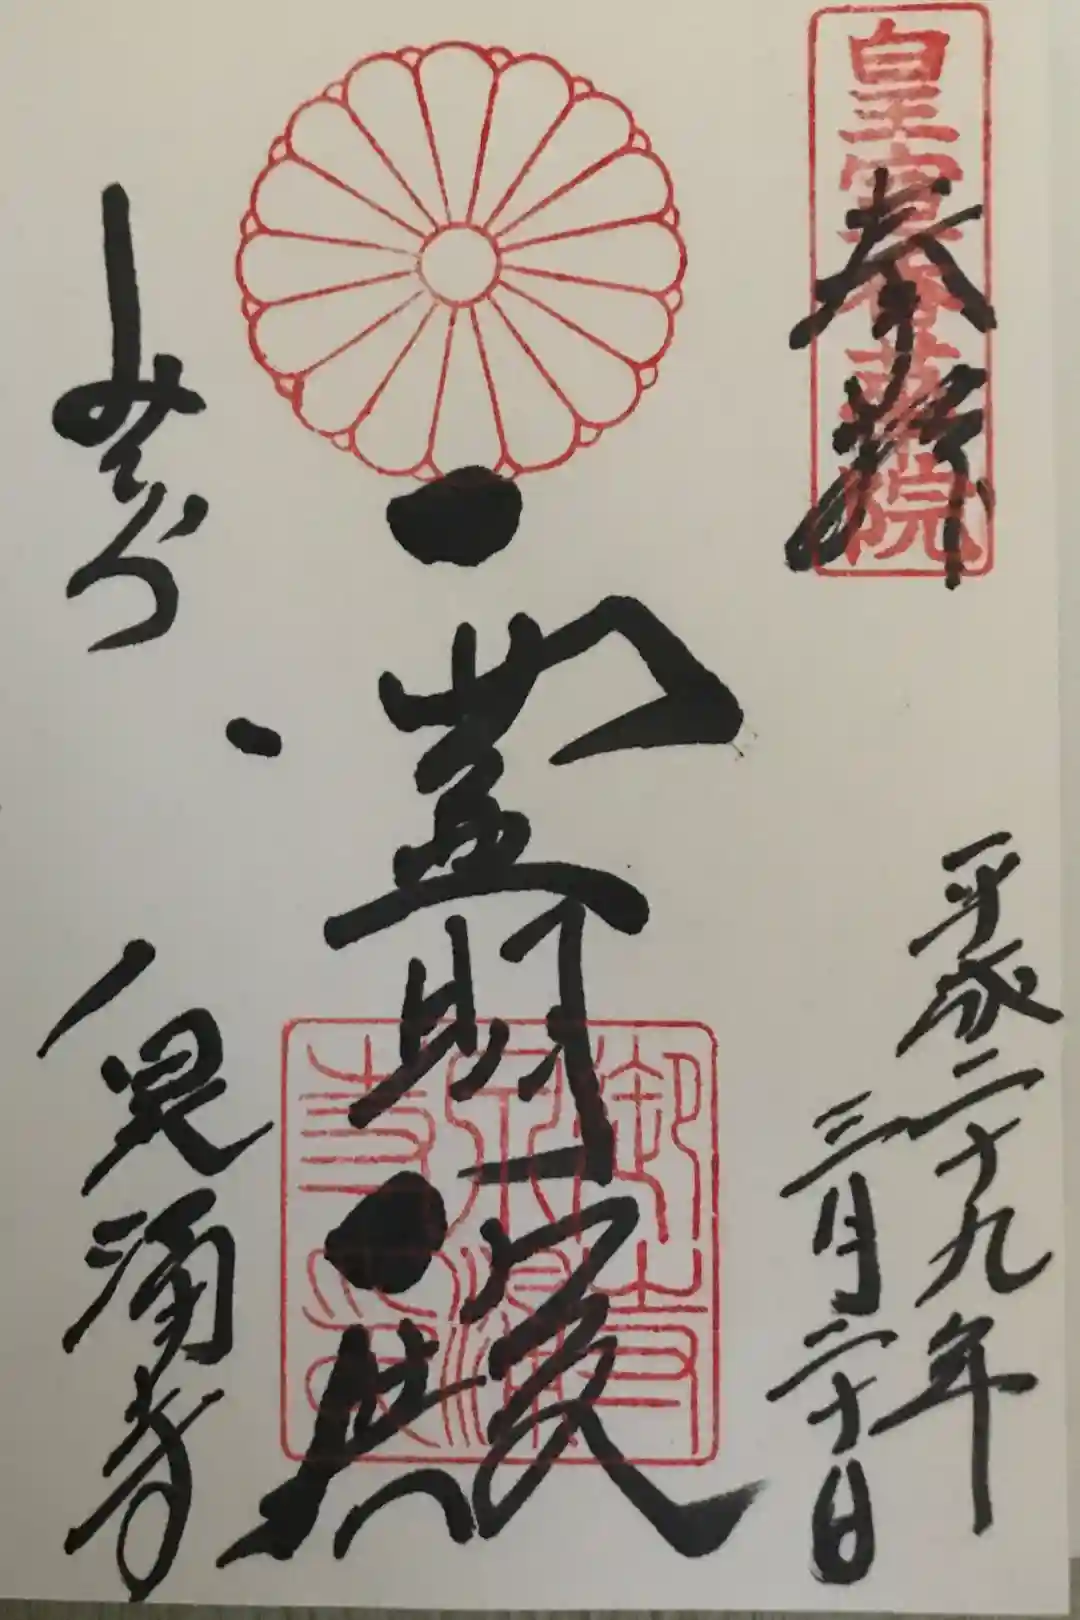 皇室香華院
奉拝
平成二十九年
三月二十日
霊明殿
みてら
泉涌寺